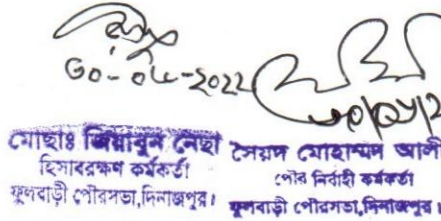 ৩০-০৬-২০২২
মোছাঃ জিয়াবুন নেছা
হিসাবরক্ষণ কর্মকর্তা
ফুলবাড়ী পৌরসভা,দিনাজপুর।
সৈয়দ মোহাম্মদ আলী
পৌর নির্বাহী কর্মকর্তা
ফুলবাড়ী পৌরসভা,দিনাজপুর।